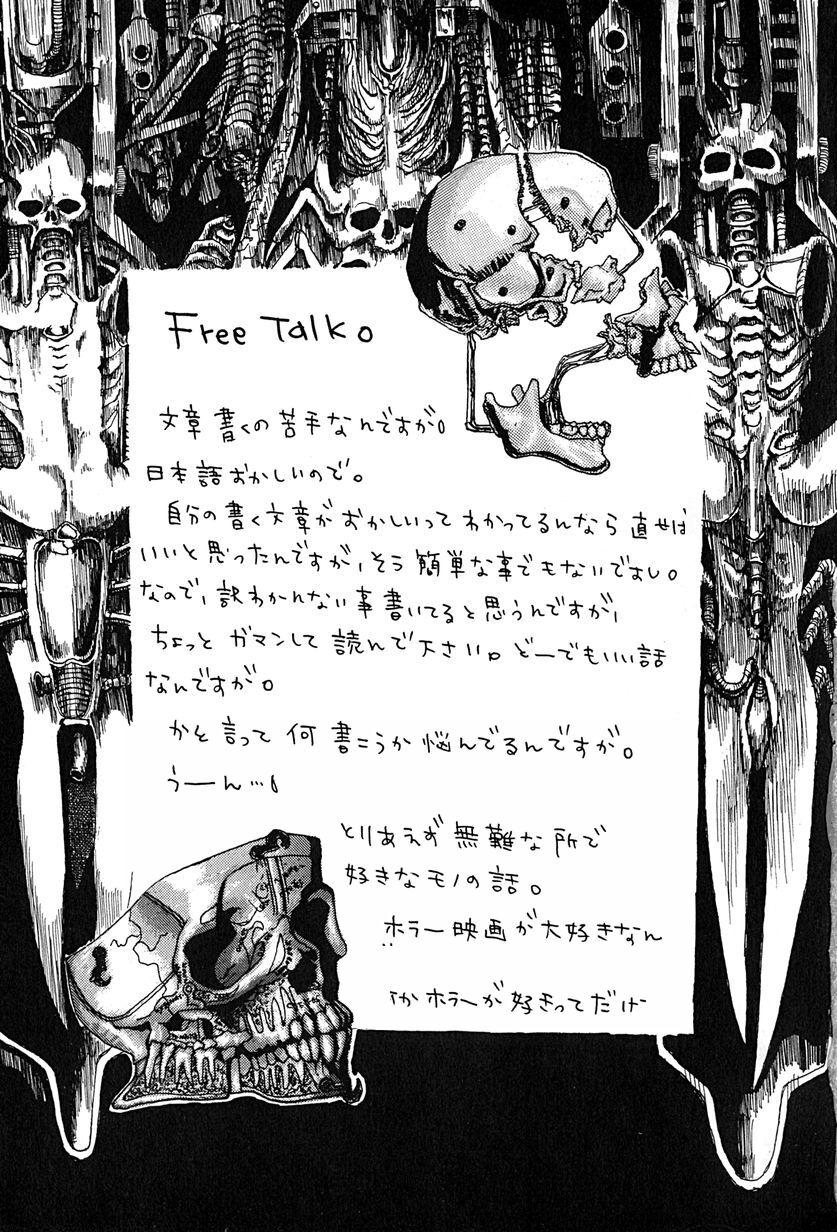 Free Talk。
文章書くの苦手なんですが。
日本語おかしいので。
自分の書く文章がおかしいってわかってるんなら直せば
いいと思ったんですが、そう簡単な事でもないですし。
なので、訳わかんない事書いてると思うんですが、
ちょっとガマンして読んで下さい。どーでもいい話
なんですが。
かと言って何書こうか悩んでるんですが。
うーん…。
とりあえず無難な所で
好きなモノの話。
ホラー映画が大好きなん
かホラーが好きってだけ